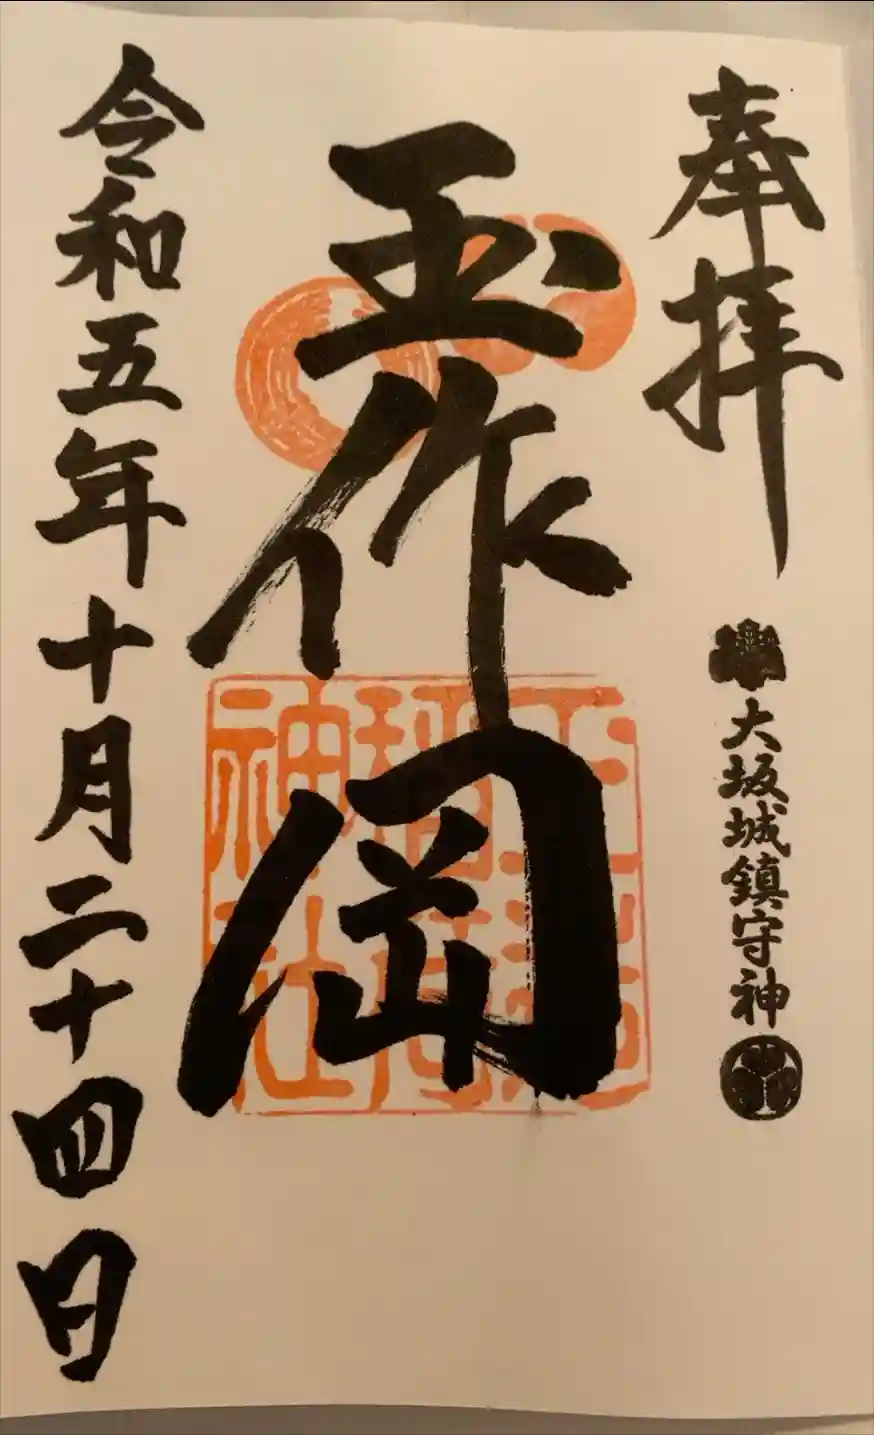 奉拝
大坂城鎮守神
玉作岡
玉造稲荷神社
令和五年十月二十四日